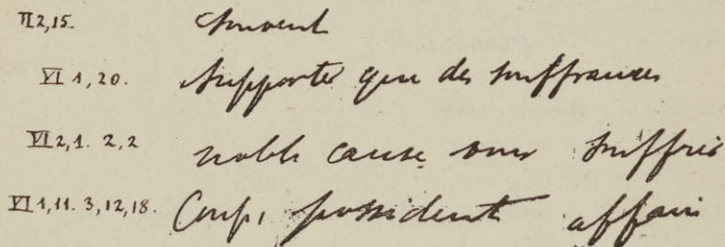 II 2,15. Souvent
VI 1,20. Supporter que des souffrances
VI 2,1. 2,2 noble cause vous souffrir
VI 1,11. 3,12,18. Corps, possident affair